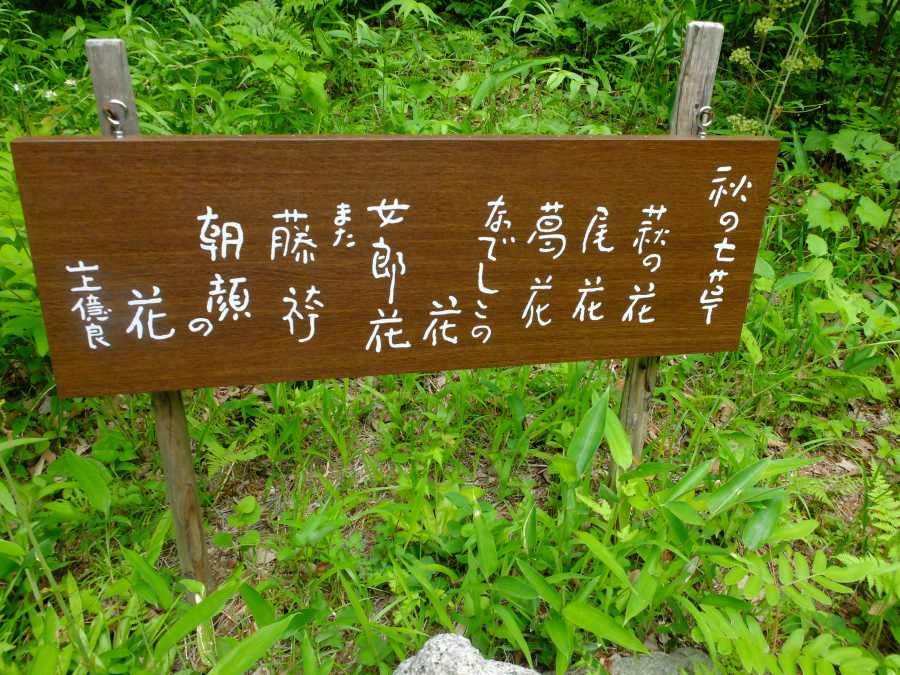 秋の七草
萩の花
尾花
葛花
なでしこの
花
女郎花
また
藤袴
朝顔の
花
上億良